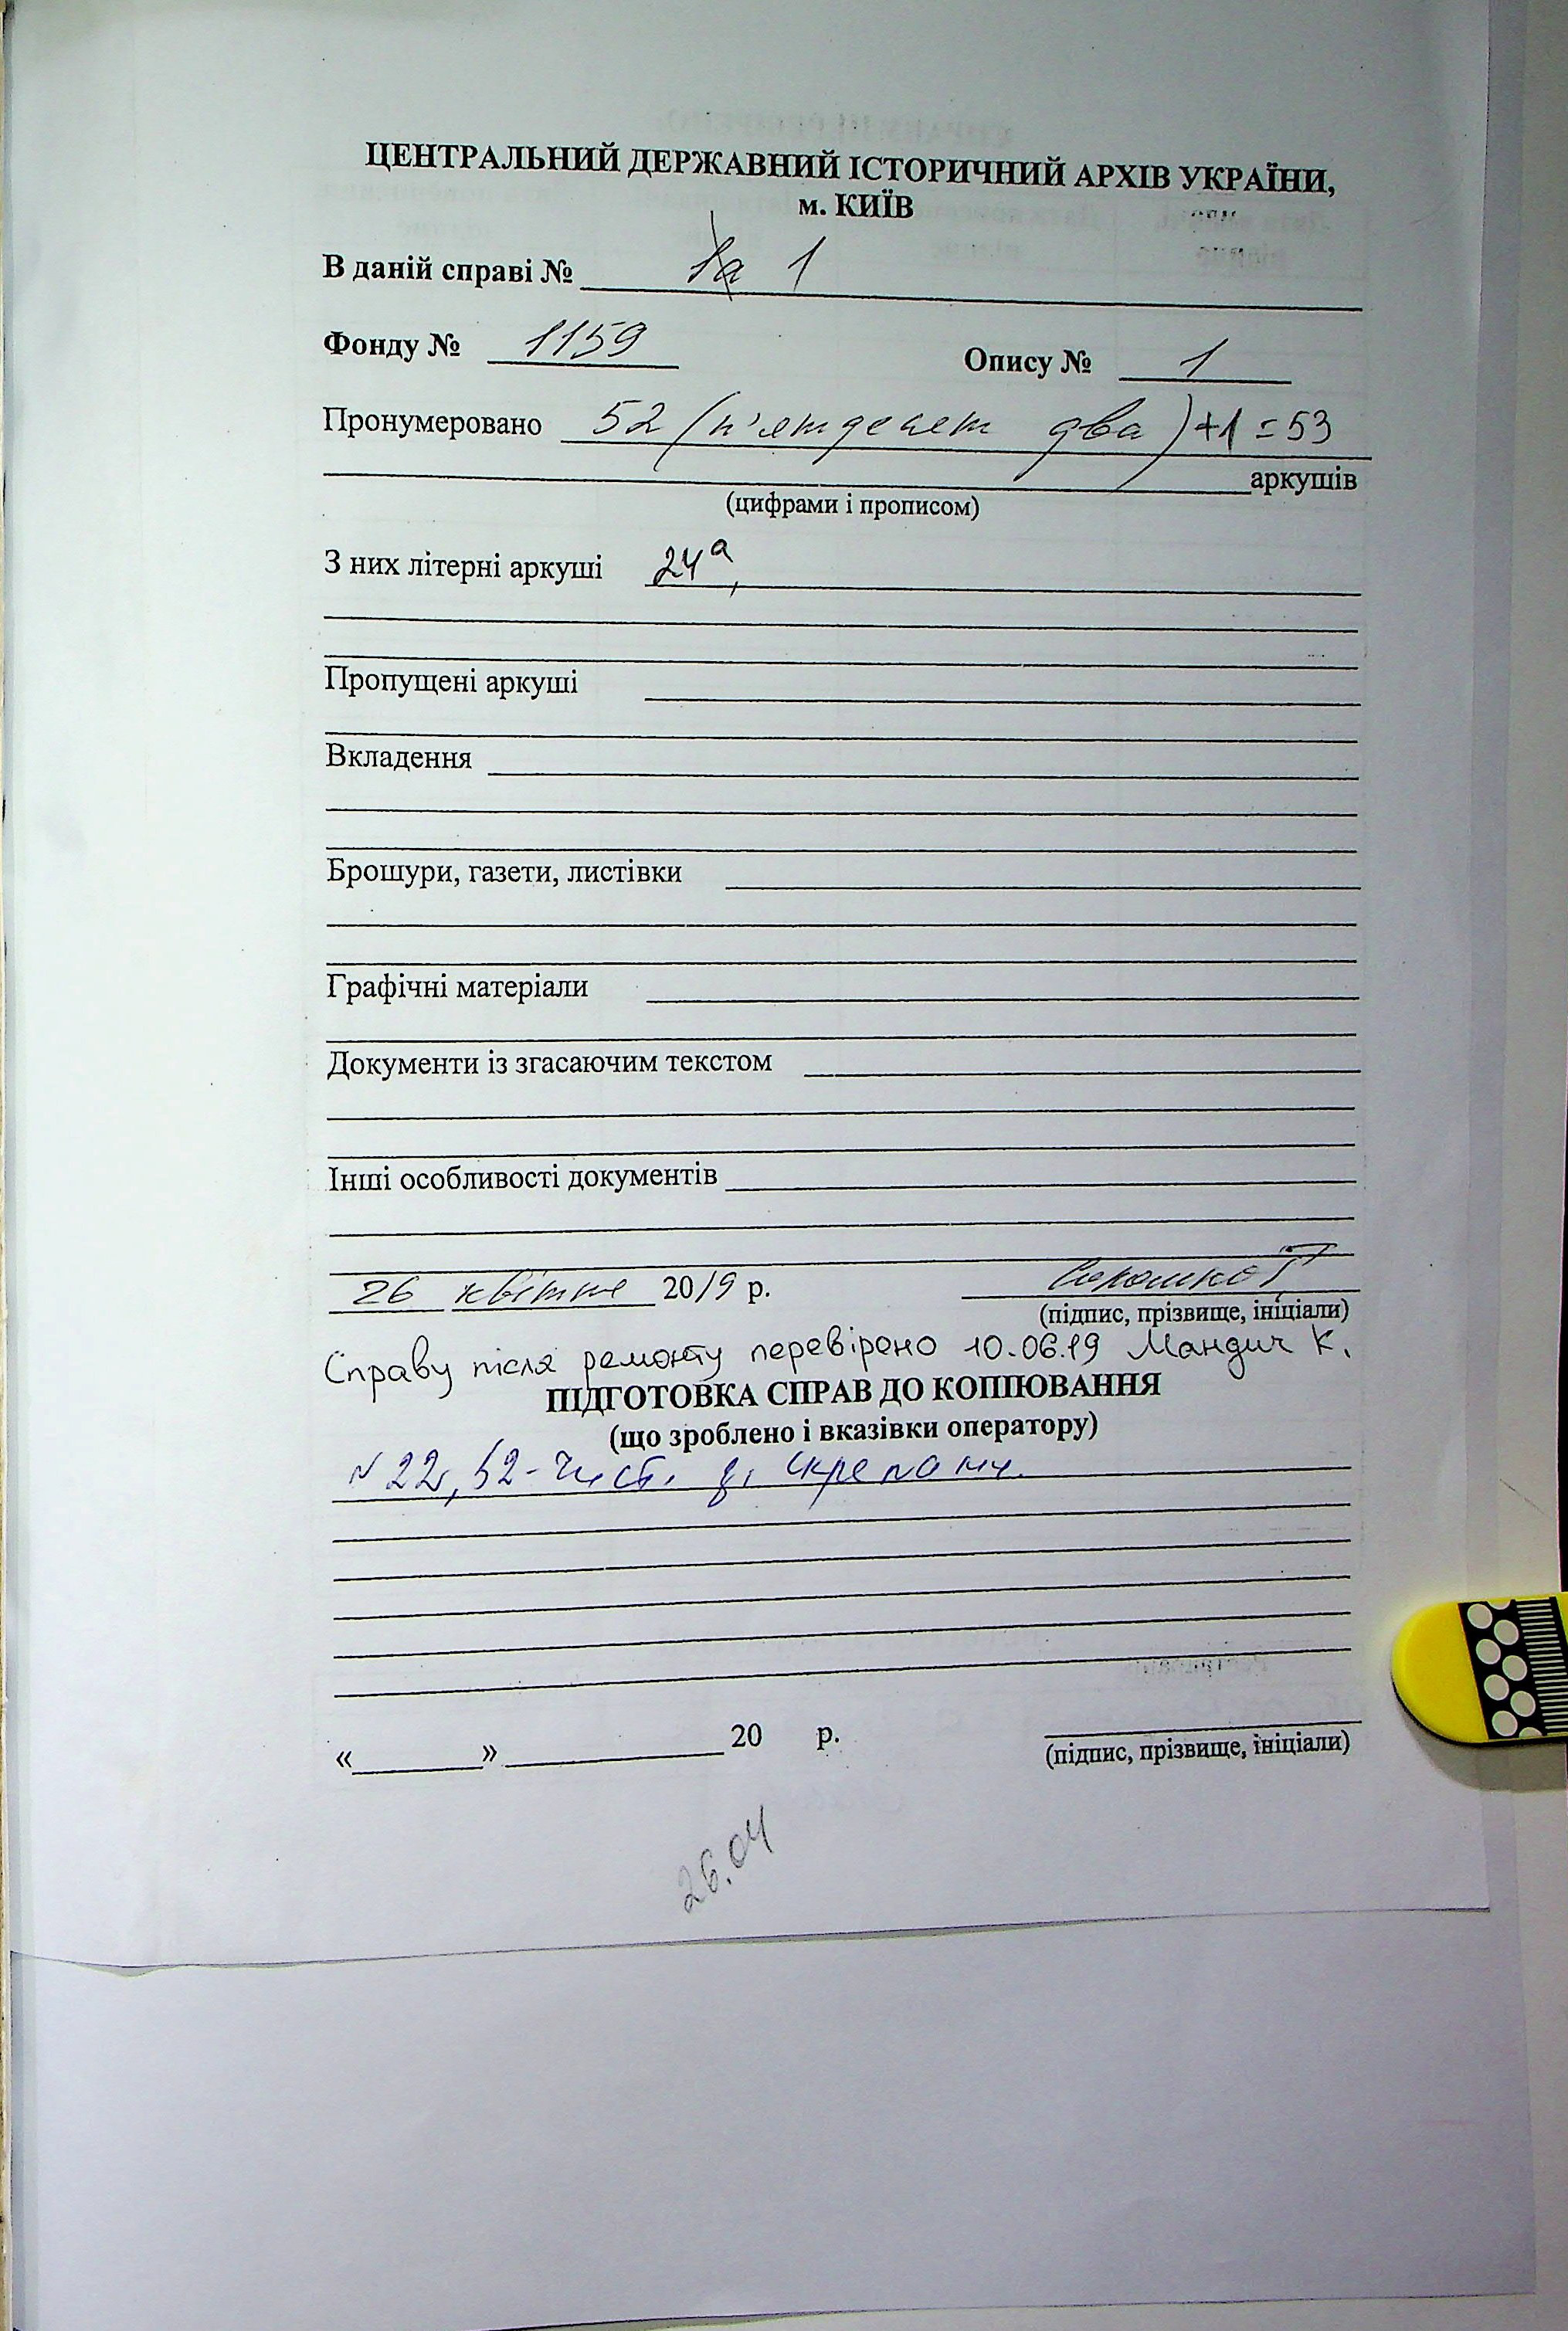 ЦЕНТРАЛЬНИЙ ДЕРЖАВНИЙ ІСТОРИЧНИЙ АРХІВ УКРАЇНИ,
м. КИЇВ
В даній справі № 1а 1
Фонду № 1159 Опису № 1
Пронумеровано 52 (п'ятдесят два) +1 = 53
аркушів
(цифрами і прописом)
З них літерні аркуші 24а,
Пропущені аркуші
Вкладення
Брошури, газети, листівки
Графічні матеріали
Документи із згасаючим текстом
Інші особливості документів
26 квітня 2019 р.
(підпис, прізвище, ініціали)
Справу після ремонту перевірено 10.06.19 Мандич К.
ПІДГОТОВКА СПРАВ ДО КОПІЮВАННЯ
(що зроблено і вказівки оператору)
22, 52-
« » 20 р.
(підпис, прізвище, ініціали)
26.04